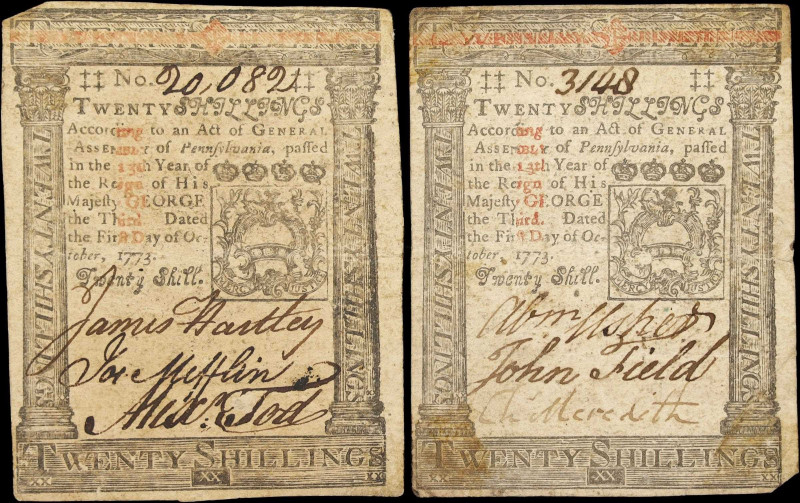 ‡‡ No. 20,082 ‡‡
TWENTY SHILLINGS
According to an Act of GENERAL
ASSEMBLY of Pennsylvania, passed
in the 13th Year of
the Reign of His
Majesty GEORGE
the Third. Dated
the First Day of Oc-
tober, 1773.
Twenty Shill.
MERCY JUSTICE
James Hartley
Jos Mifflin
Alexr. Tod
TWENTY SHILLINGS
TWENTY SHILLINGS
TWENTY SHILLINGS
XX XX XX
‡‡ No. 3148 ‡‡
TWENTY SHILLINGS
According to an Act of GENERAL
ASSEMBLY of Pennsylvania, passed
in the 13th Year of
the Reign of His
Majesty GEORGE
the Third. Dated
the First Day of Oc-
tober, 1773.
Twenty Shill.
MERCY JUSTICE
Abm Usher
John Field
Ch. Meredith
TWENTY SHILLINGS
TWENTY SHILLINGS
TWENTY SHILLINGS
XX XX XX